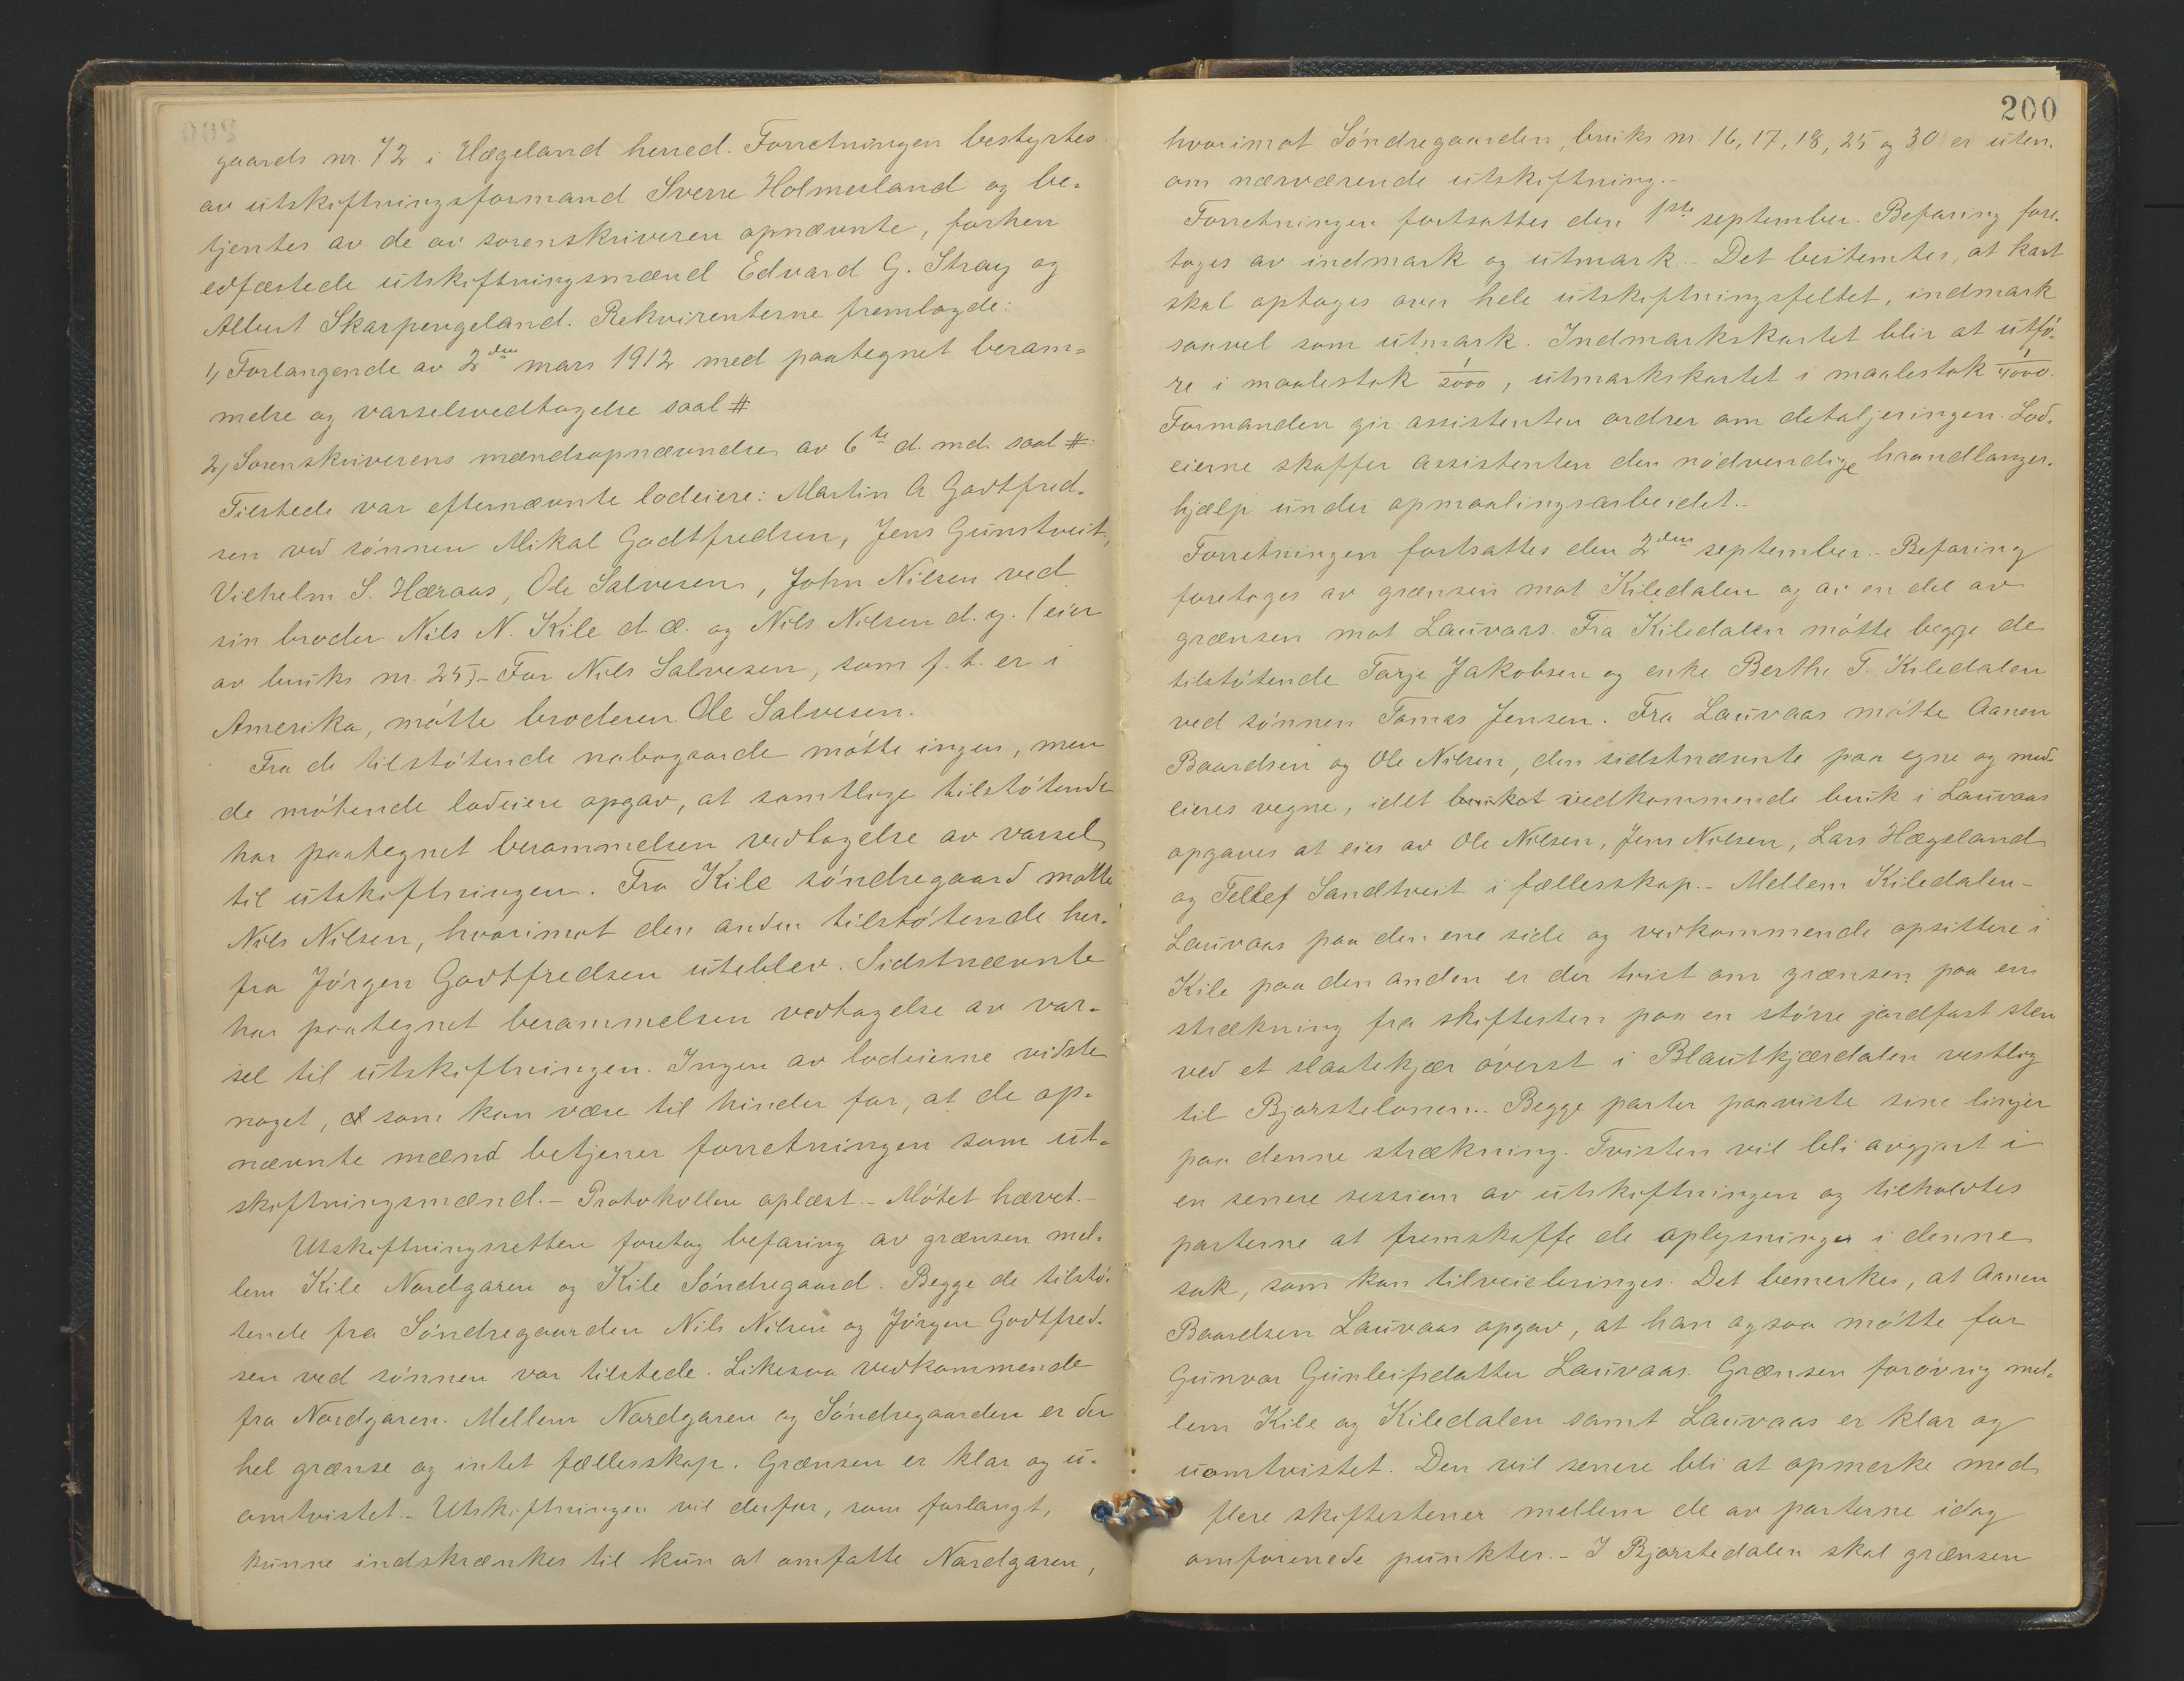 gaards nr. 72 i Hægeland herred. Forretningen bestyrtes
av utskiftningsformand Sverre Holmesland og be-
tjentes av de av sorenskriveren opnævnte, forhen
edfæstede utskiftningsmænd Edvard G. Stray og
Albert Skarpengeland. Rekvirenterne fremlagde:
1, Forlangende av 2den mars 1912 med paategnet beram-
melse og varselsvedtagelse saal #
2, Sorenskriverens mændsopnævndelse av 6te d. md. saal #:
Tilstede var efternævnte lodeiere: Martin A Godtfred-
sen ved sønnen Mikal Godtfredsen, Jens Gunstveit,
Vilhelm S. Hæraas, Ole Salvesen, John Nilsen ved
sin broder Nils N. Kile d. æ. og Nils Nilsen d. y. (eier
av bruks nr. 25).- For Nils Salvesen, som f. t. er i
Amerika, møtte broderen Ole Salvesen.
Fra de tilstøtende nabogaarde møtte ingen, men
de møtende lodeiere opgav, at samtlige tilstøtende
har paategnet berammelsen vedtagelse av varsel
til utskiftningen. Fra Kile søndregaard møtte
Nils Nilsen, hvorimot den anden tilstøtende her-
fra Jørgen Godtfredsen uteblev. Sidstnævnte
har paategnet berammelsen vedtagelse av var-
sel til utskiftningen. Ingen av lodeierne vidste
noget, som kan være til hinder for, at de op-
nævnte mænd betjener forretningen som ut-
skiftningsmænd.- Protokollen oplæst.- Møtet hævet.-
Utskiftningsretten foretog befaring av grænsen mel-
lem Kile Nordgaren og Kile Søndregaard. Begge de tilstø-
tende fra Søndregaarden Nils Nilsen og Jørgen Godtfred-
sen ved sønnen var tilstede. Likesaa vedkommende
fra Nordgaren. Mellem Nordgaren og Søndregaarden er der
hel grænse og intet fællesskap. Grænsen er klar og u-
omtvistet.- Utskiftningen vil derfor, som forlangt,
kunne indskrænkes til kun at omfatte Nordgaren,
200
hvorimot Søndregaarden, bruks nr. 16, 17, 18, 25 og 30 er uten-
om nærværende utskiftning.-
Forretningen fortsattes den 1ste september. Befaring fore-
toges av indmark og utmark.- Det bestemtes, at kart
skal optages over hele utskiftningsfeltet, indmark
saavel som utmark. Indmarkskartet blir at utfø-
re i maalestok 1/2000, utmarkskartet i maalestok 1/4000.
Formanden gir assistenten ordrer om detaljeringen. Lod-
eierne skaffer assistenten den nødvendige haandlanger-
hjælp under opmaalingsarbeidet.-
Forretningen fortsattes den 2den september.- Befaring
foretoges av grænsen mot Kiledalen og av en del av
grænsen mot Lauvaas. Fra Kiledalen møtte begge de
tilstøtende Tarje Jakobsen og enke Berthe T. Kiledalen
ved sønnen Tomas Jensen. Fra Lauvaas møtte Aanen
Baardsen og Ole Nilsen, den sidstnævnte paa egne og med-
eieres vegne, idet bruket vedkommende bruk i Lauvaas
opgaves at eies av Ole Nilsen, Jens Nilsen, Lars Hægeland
og Tellef Sandtveit i fællesskap.- Mellem Kiledalen-
Lauvaas paa den ene side og vedkommende opsittere i
Kile paa den anden er der tvist om grænsen paa en
strækning fra skiftesten paa en større jordfast sten
ved et slaatekjær øverst i Blautkjærdalen vestlig
til Bjorstelonen.- Begge parter paaviste sine linjer
paa denne strækning. Tvisten vil bli avgjort i
en senere session av utskiftningen og tilholdtes
parterne at fremskaffe de oplysninger i denne
sak, som kan tilveiebringes. Det bemerkes, at Aanen
Baardsen Lauvaas opgav, at han ogsaa møtte for
Gunvor Gunleifsdatter Lauvaas. Grænsen forøvrig mel-
lem Kile og Kiledalen samt Lauvaas er klar og
uomtvistet. Den vil senere bli at opmerke med
flere skiftestener mellem de av parterne idag
omforenede punkter.- I Bjorstedalen skal grænsen